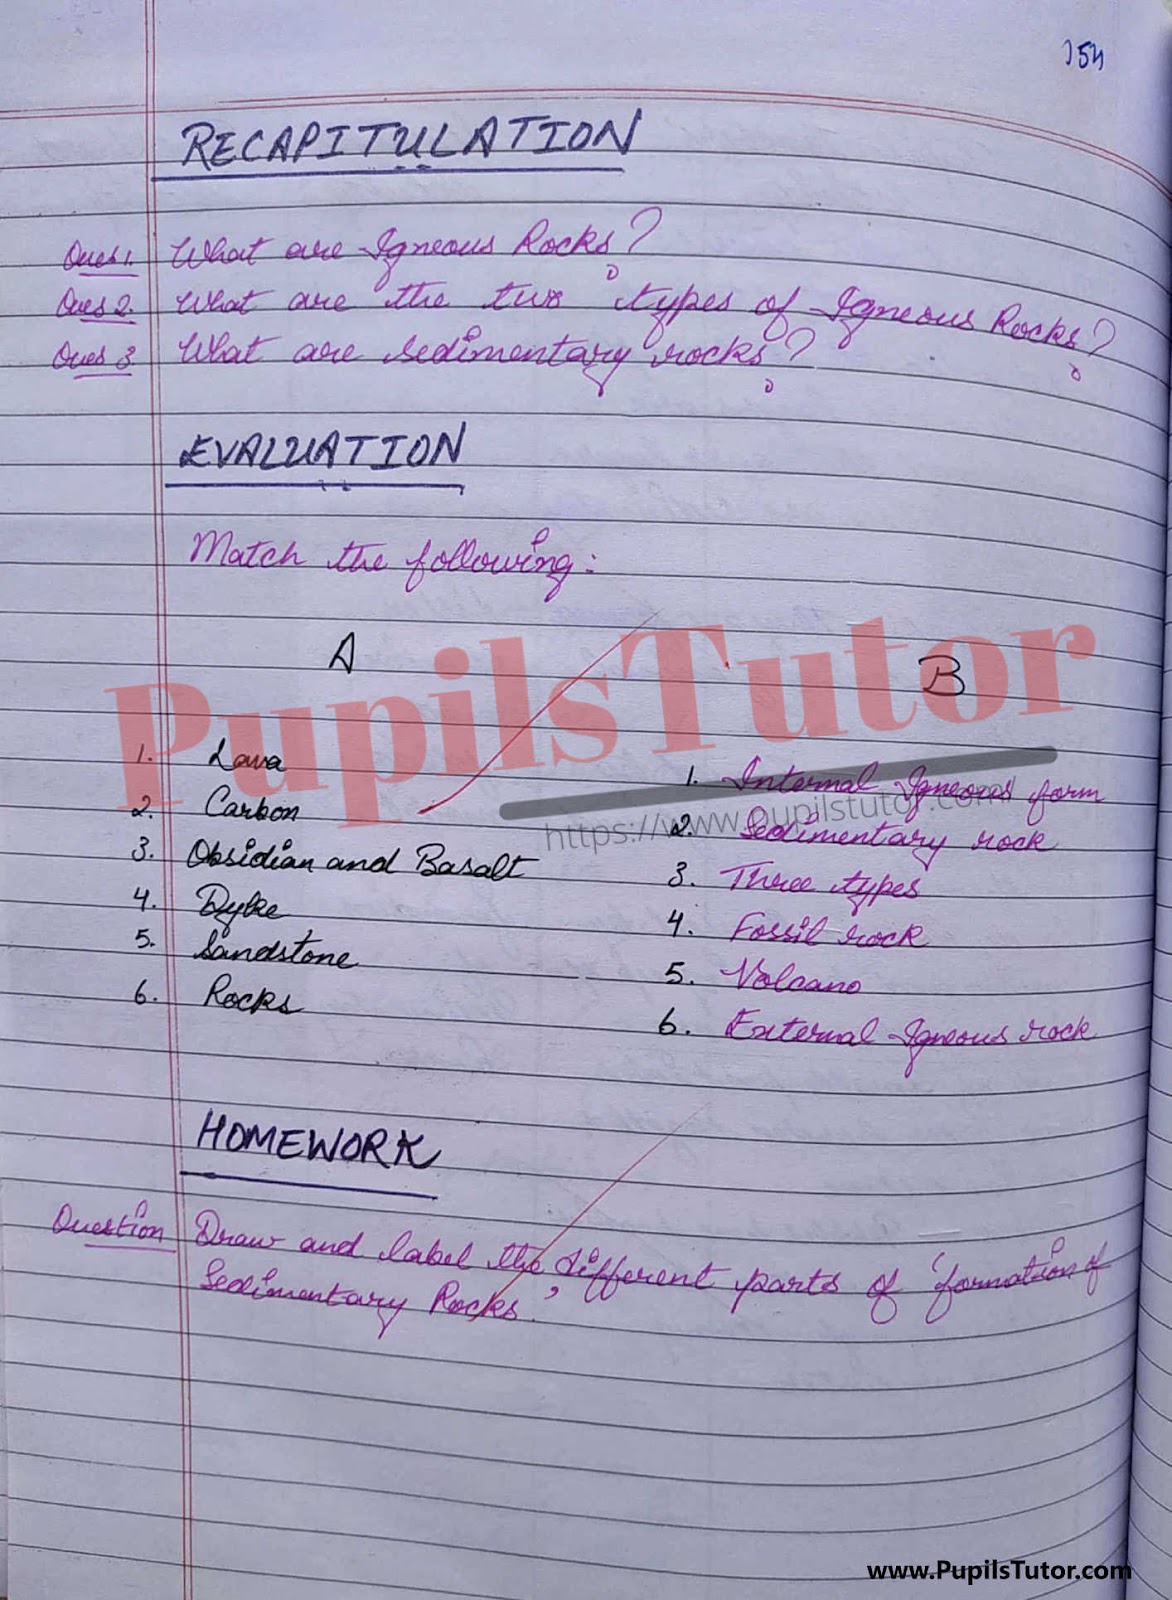 154
RECAPITULATION
Ques 1. What are Igneous Rocks?
Ques 2. What are the two types of Igneous Rocks?
Ques 3. What are sedimentary rocks?
EVALUATION
Match the following:
A B
PupilsTutor
https://www.pupilstutor.com
1. Lava
2. Carbon
3. Obsidian and Basalt
4. Dyke
5. Sandstone
6. Rocks
1. Internal Igneous form
2. Sedimentary rock
3. Three types
4. Fossil rock
5. Volcano
6. External Igneous rock
HOMEWORK
Question Draw and label the different parts of 'formation of
Sedimentary Rocks'.
www.PupilsTutor.com